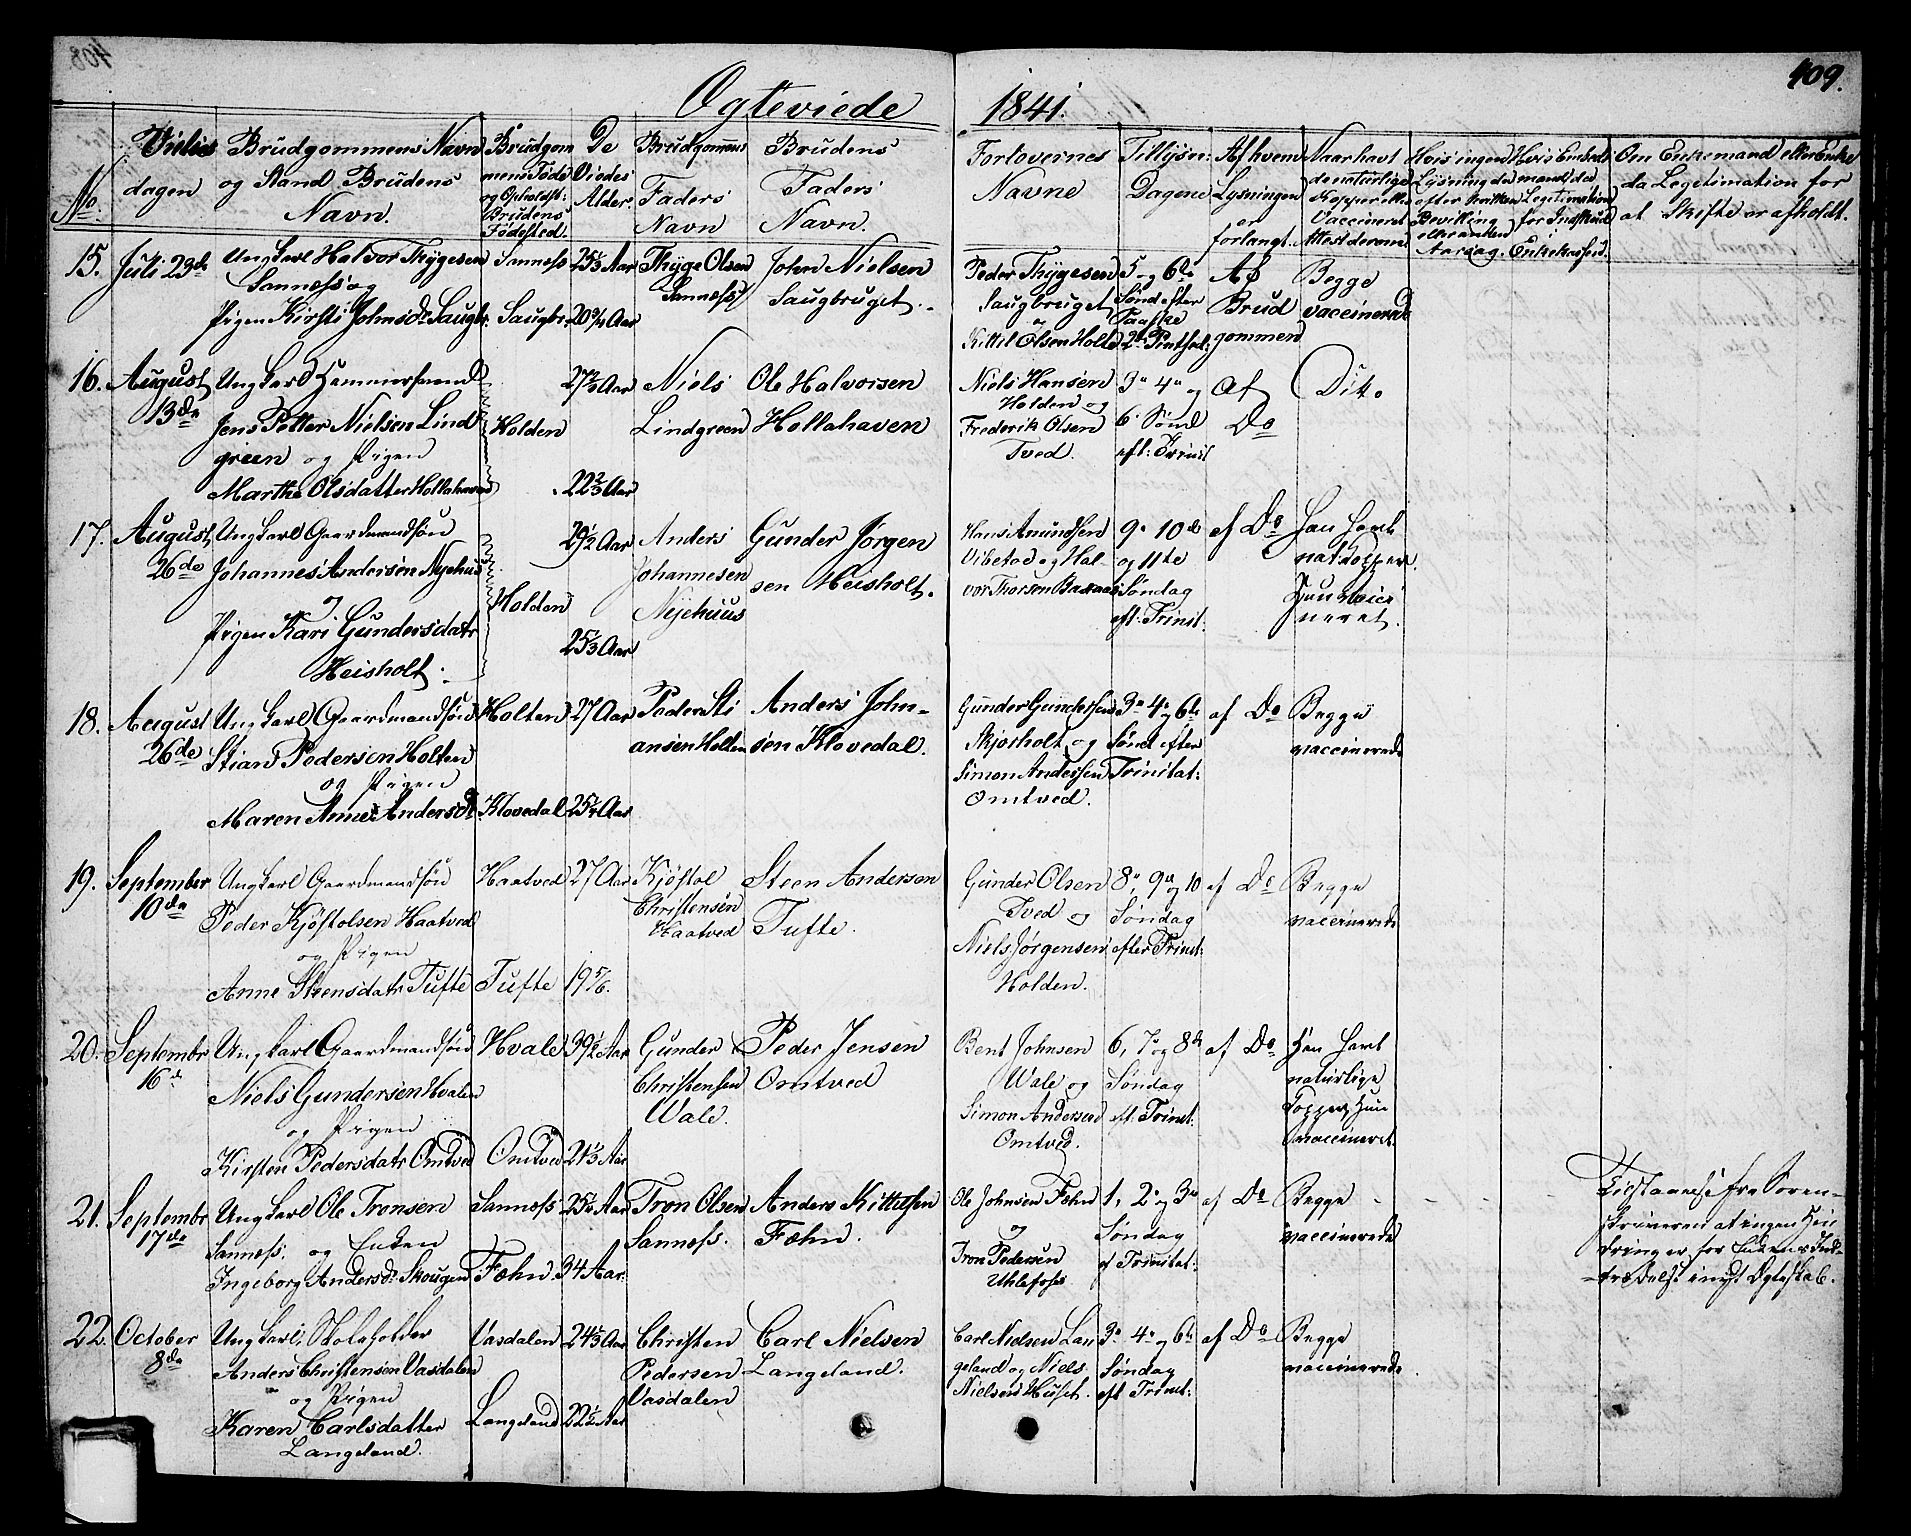 409.
Ogteviede 1841.
No.
Vielses dagen
Brudgommens Navn og Stand Brudens Navn.
Brudgommens Føde og Opholdst: Brudens Fødested.
De Viedes Alder
Brudgommens Faders Navn
Brudens Faders Navn.
Forlovernes Navne
Tillysn: Dagene
Af hvem Lysningen er forlangt.
Naar havt de naturlige Kopper eller Vaccineret Attest derom
Hvis ingen Lysning da efter hvilken Bevilling eller anden Aarsag.
Hvis Embedsmand da Legitimation for Indskud i Enkekassen.
Om Enkemand eller Enke da Legitimation for at Skifte er afholdt.
15. Juli 23de
Ungkarl Halvor Thygesen
Sanness og
Pigen Kirsti Johnsd. Saugbr.
Sanness
Saugbr.
25 1/3 Aar
20 3/4 Aar
Thyge Olsen
Sanness
John Nielsen
Saugbruget.
Peder Thygesen
Saugbruget
og
Kittil Olsen Holte
5 og 6te
Sønd efter
Paaske
2den Pintsed:
Af
Brud
gommen
Begge
vaccinerede
16. August
13de
Ungkarl Hammersmed
Jens Petter Nielsen Lind
green og Pigen
Marthe Olsdatter Hollahaven
Holden
22 2/3 Aar
Niels
Lindgreen
Ole Halvorsen
Hollahaven
Niels Hansen
Holden og
Frederik Olsen
Tved.
3die 4de og
6te Sønd
eft: Trinit
Af
Do
Dito
17. August
26de
Ungkarl Gaardmandsøn
Johannes Andersen Nyehuus
og
Pigen Kari Gundersdatr
Heisholt.
Holden
25 1/3 Aar
Anders
Johannesen
Nyehuus
Gunder Jørgen
sen Heisholt.
Hans Amundsen
Vibetoe og Hal
vor Thorsen
9de 10de
og 11te
Søndag
eft: Trinit:
af Do
Han havt
nat Kopper.
Hun vacci
neret.
18. August
26de
Ungkarl Gaardmandsøn
Stian Pedersen Holten
og Pigen
Maren Anne Andersd.
Holten
Klovedal
27 Aar
25 1/4 Aar
Peder Sti
ansen Holten
Anders John-
sen Klovedal.
Gunder Gundersen
Skjorholt og
Simon Andersen
Omtved.
3de 4de og 6te
Sønd efter
Trinitat:
af Do
Begge
vaccinerede
19. September
10de
Ungkarl Gaardmandsøn
Peder Kjøstolsen Haatved
og Pigen
Anne Steensdatr Tufte
Haatved
Tufte
27 Aar
19 5/6.
Kjøstol
Christensen
Haatved
Steen Andersen
Tufte.
Gunder Olsen
Tved og
Niels Jørgensen
Holden.
8de, 9de og 10
Søndag
efter Trinit:
af Do
Begge
vaccinerede
20. Septembr
16de
Ungkarl Gaardmandsøn
Niels Gundersen Hvalen
og Pigen
Kirsten Pedersdatr Omtved
Hvale
Omtved
39 1/2 Aar
21 1/3 Aar
Gunder
Christensen
Wale.
Peder Jensen
Omtved
Bent Johnsen
Wale og
Simon Andersen
Omtved.
6, 7de og 8de
Søndag
eft. Trinit:
af Do
Han havt
naturlige
Kopper, Hun
vaccineret
21. Septembr
17de
Ungkarl Ole Tronsen
Sanness. og Enken
Ingeborg Andersd. Skougen
Sanness
Fæhn.
25 1/2 Aar
34 Aar.
Tron Olsen
Sanness.
Anders Kittilsen
Fæhn.
Ole Johnsen Fæhn
og
Tron Pedersen
Uhlefoss
1, 2de og 3de
Søndag
ef Trinitat:
af Do
Begge
vaccinerede
Tilstaaelse fra Soren-
skriveren at ingen Hin
dring er for Enkens Ind-
trædelse i nyt Ægteskab.
22. October
8de
Ungkarl, Skoleholder
Anders Christensen Vasdalen
og Pigen
Karen Carlsdatter
Langeland.
Vasdalen
Langeland
24 1/3 Aar
22 1/2 Aar
Christen
Pedersen
Vasdalen
Carl Nielsen
Langeland.
Carl Nielsen Lan
geland og Niels
Nielsen Huset.
3de 4de og 6te
Søndag
eft Trinit:
af Do
Begge
vaccinerede